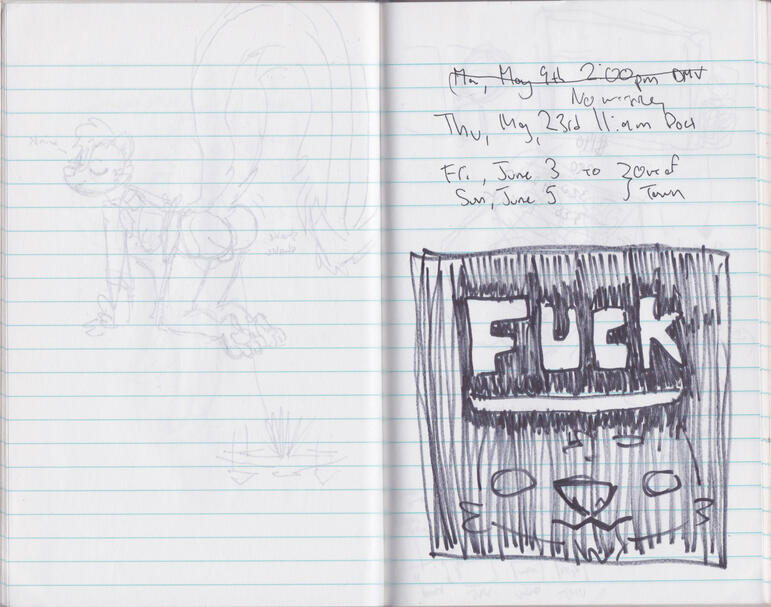 (Mon, May 9th 2:00pm DMV
No
Thu, May, 23rd 11:am
Fri, June 3 to } Out of
Sun, June 5 } Town
FUCK